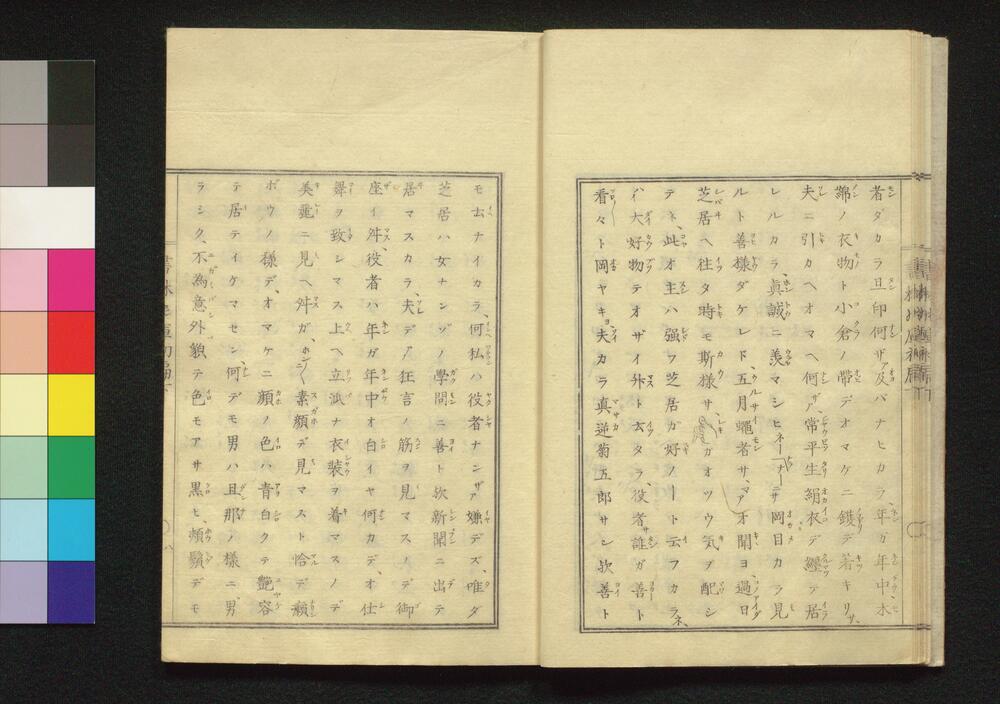 者ダカラ旦印何ザア及バナヒカラ、年ガ年中木
綿ノ衣物ト小倉ノ帶デオマケニ鐚デ着キリサ、
夫ニ引カヘオマヘ何ザア、常平生絹衣デ纒テ居
レルカラ、眞誠ニ羨マシヒネーナニサ岡目カラ見
ルト善樣ダケレド、五月蠅者サ、マアオ聞ヨ過日
芝居ヘ往タ時モ斯樣サ、ガオツウ気ヲ配シ
テト、此オ主ハ强フ芝居ガ好ノート云フカラネ、
大好物テオザイ舛ト云タラ、役者サ誰ガ善ト
看々ト岡ヤキ夫カラ真逆菊五郎サン欤善ト
モ云ナイカラ、何私ハ役者ナンザア嫌デズ、唯ダ
芝居ハ女ナンゾノ學問ニ善ト欤新聞ニ出テ
居マスカラ、夫デア狂言ノ筋ヲ見マスノデ御
座イ舛、役者ハ年ガ年中オ白イヤ何カデ、オ仕
舉ヲ致シマス上ヘ立派ナ衣装ヲ着マスノデ
美麗ニ見ヘ舛ガ、ホン〳〵素顔デ見マスト恰デ癩
ボウノ樣デ、オマケニ顔ノ色ハ青白クテ艶容
テ居テイケマセン、何デモ男ハ旦那ノ樣ニ、男
ラシク、不為意外貌テ色モアサ黒ヒ、頰鬚デモ